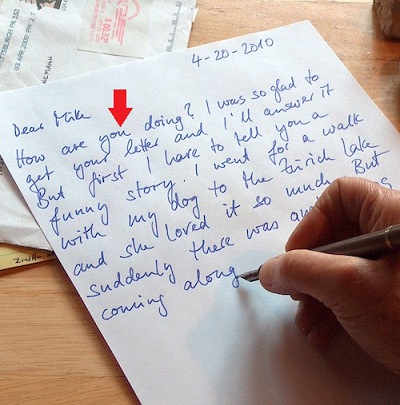 PITTSBURGH PA 152
03 APR 2008 PM 2
4-20-2010
Dear Mike
How are you doing? I was so glad to
get your letter and I'll answer it
But first I have to tell you a
funny story. I went for a walk
with my dog to the Zürich Lake
and she loved it so much. But
suddenly there was
coming along